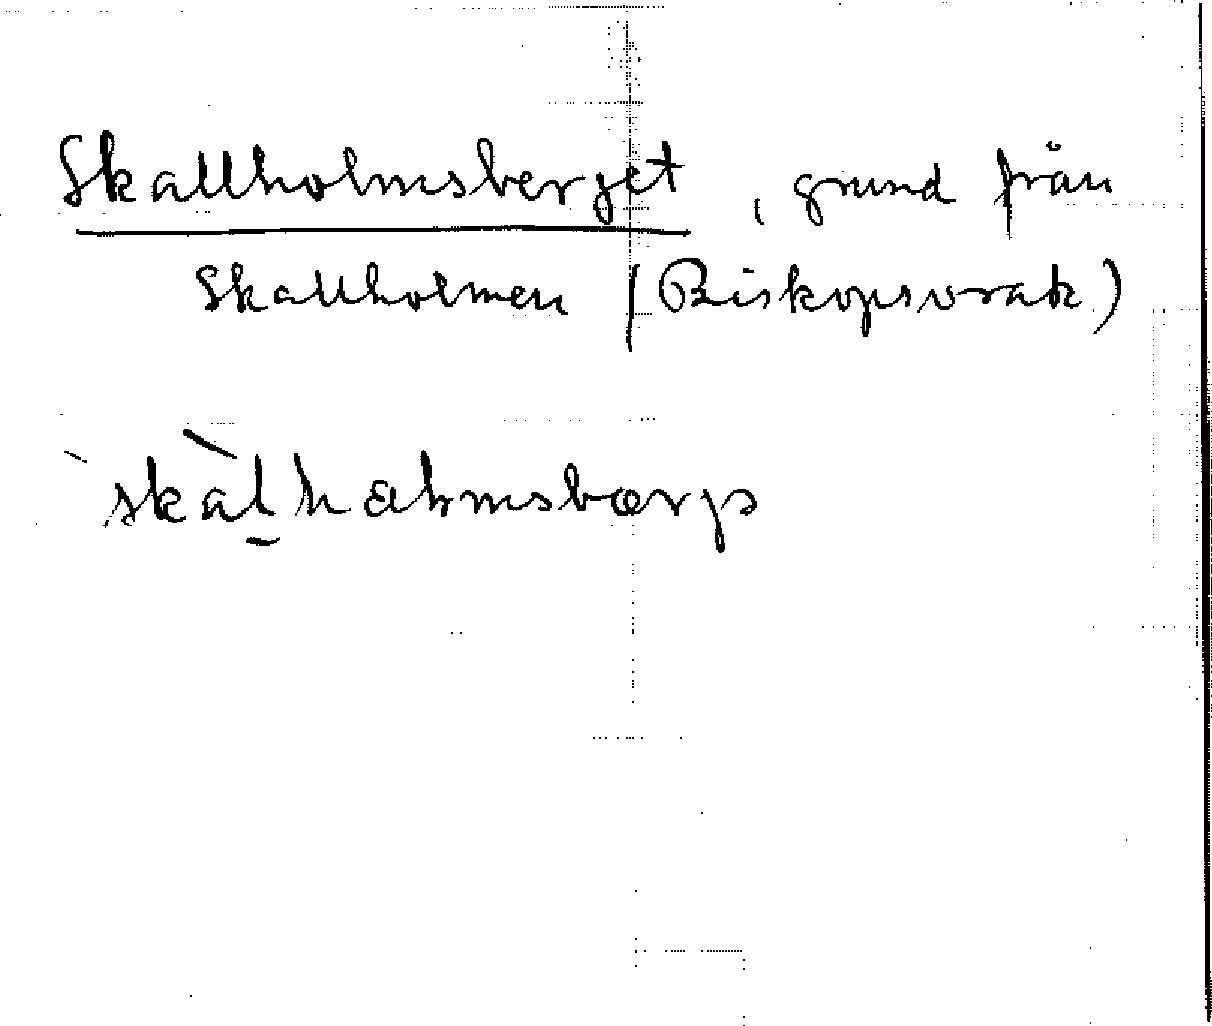 Skallholmsberget, grund från
Skallholmen (Biskopsvrak)
skàl̠hɷlmsbærjə